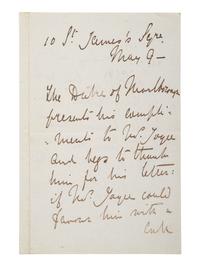 10 St. James's Sqre.
May 9 —
The Duke of Marlborough
presents his compli-
-ments to Mr. Joyce
and begs to thank
him for his letter:
if Mr. Joyce could
favour him with a
call